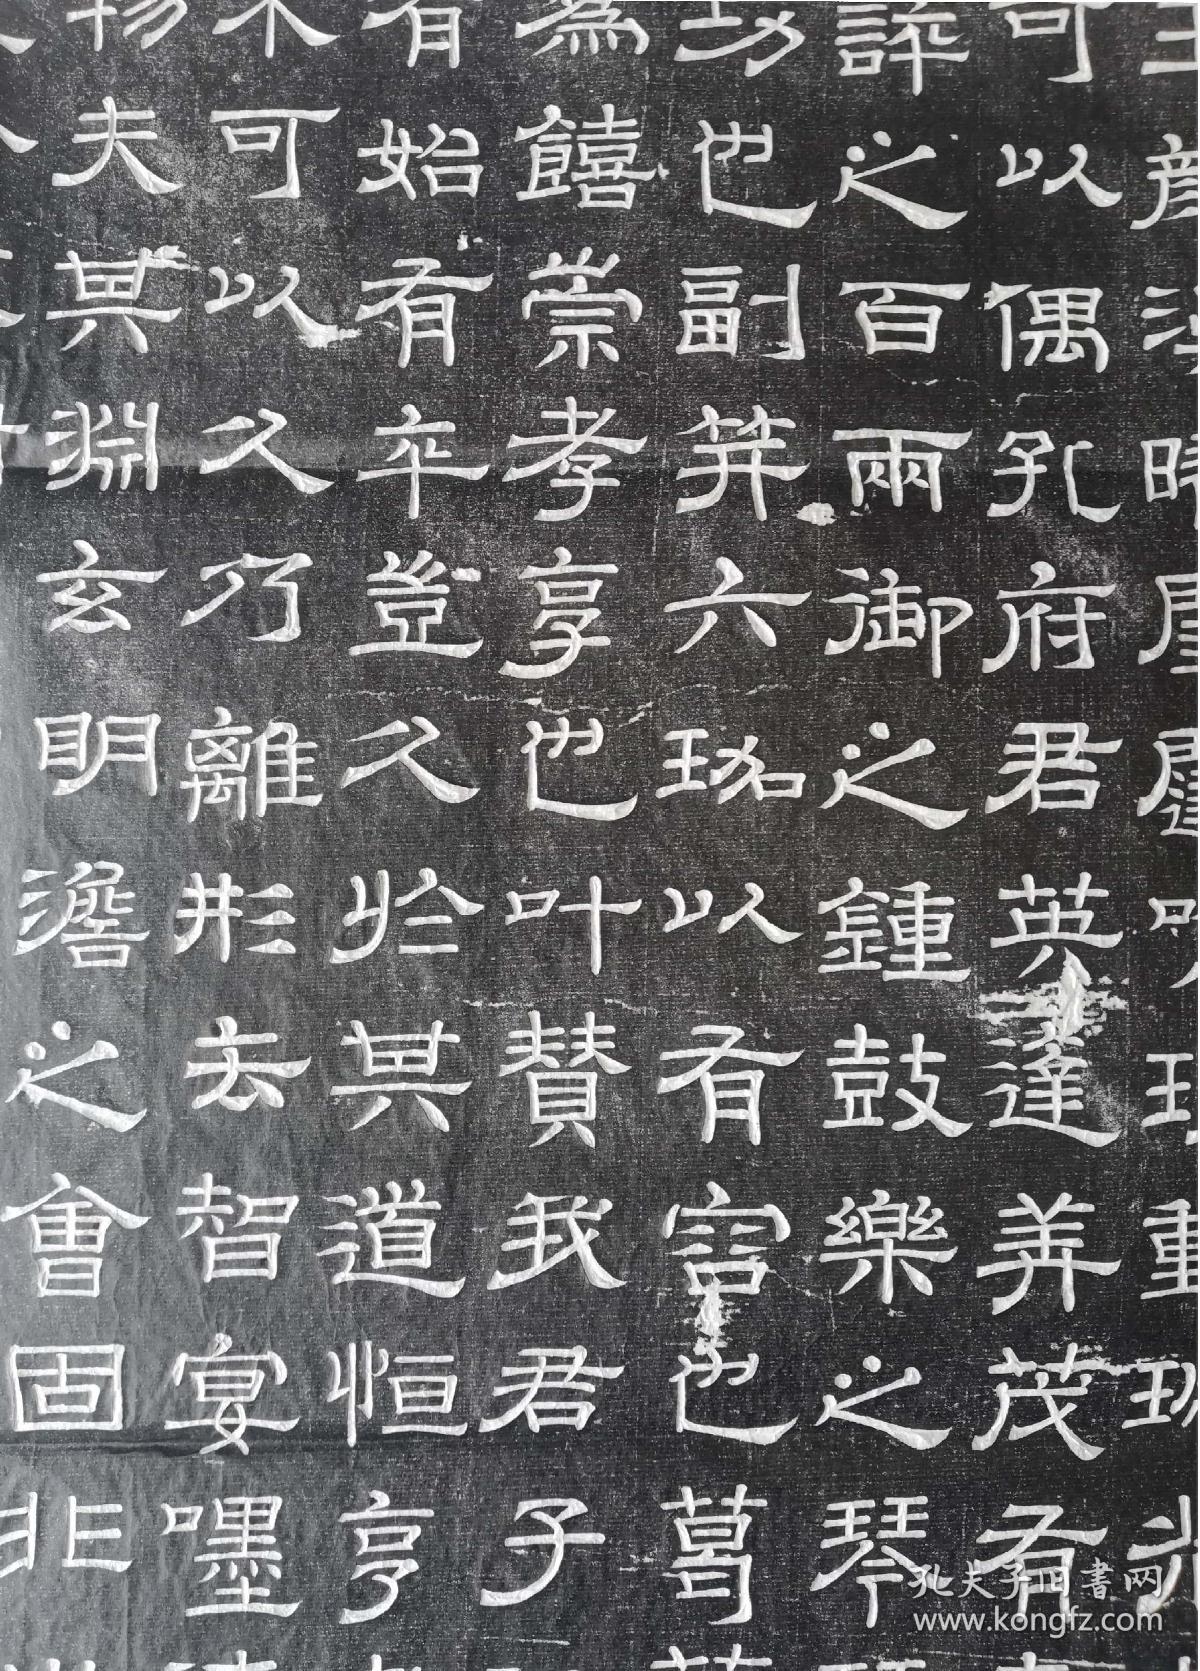 彦
時
重
可以偶孔府君英蓬并茂有
詳之百兩御之鍾鼓樂之琴
功也副笄六珈以有容也葛
為饎崇孝享也叶贊我君子
有始有卒豈久於其道恒亨
不可以久乃離形去智宴嘿
物夫其淵玄明澹之會固非
孔夫子旧書网
www.kongfz.com